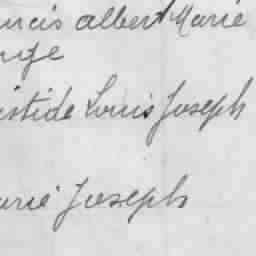 ncis albert Marie
nge
istide Louis Joseph
arie Joseph